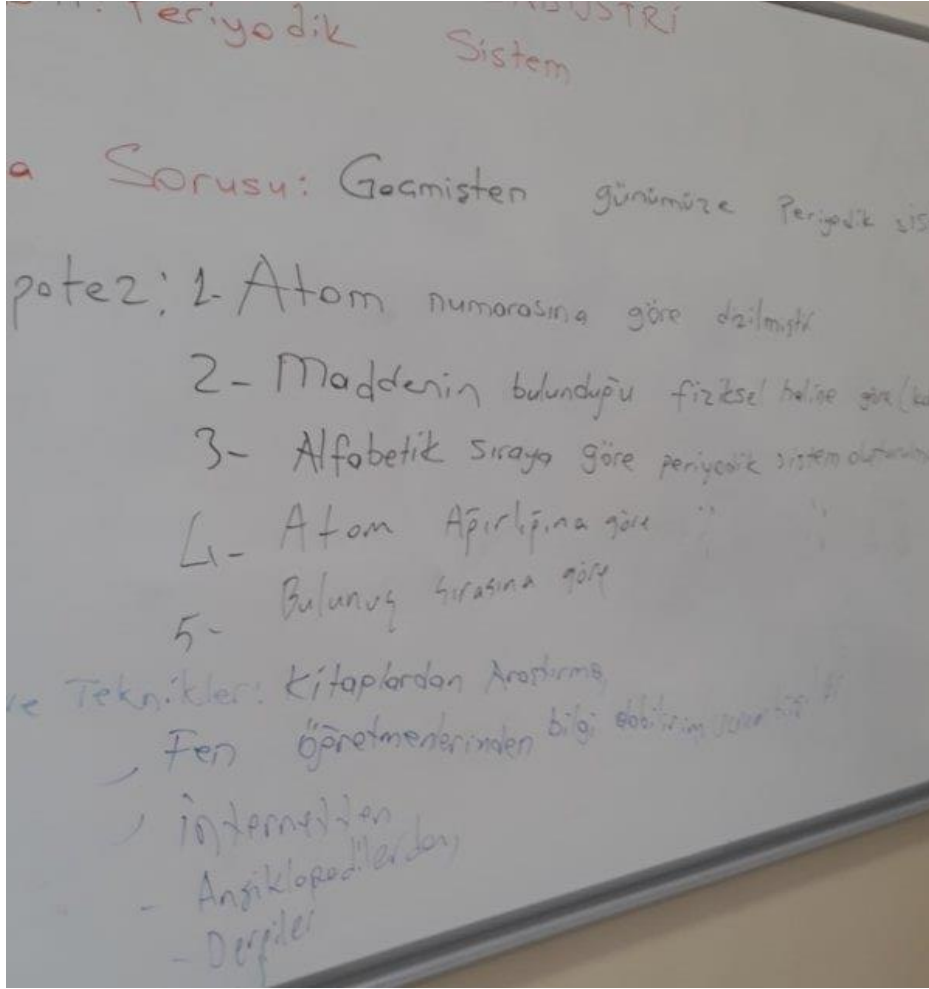 Periyodik
Sistem
a Sorusu: Geçmişten günümüze Periyodik sis
potez: 1- Atom numarasına göre dizilmiştir
2- Maddenin bulunduğu fiziksel haline göre (ka
3- Alfabetik sıraya göre periyodik sistem
4- Atom Ağırlığına göre " "
5- Bulunuş sırasına göre
ve Teknikler: Kitaplardan Araştırma
Fen öğretmenlerinden bilgi
internetten
- Ansiklopedilerden
- Dergiler